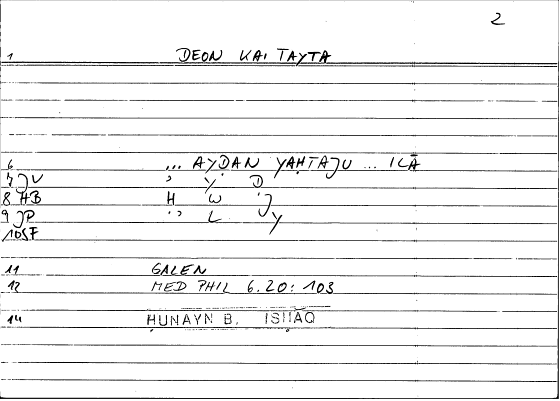 2
1 DEON KAI TAYTA
6 ... AYḌAN YAḤTAJU ... ILĀ
7 JV ʾ Y Ḍ
8 HB Ḥ W J
9 JP ʾʾ L Y
10 SF
11 GALEN
12 MED PHIL 6.20: 103
14 ḤUNAYN B. ISḤAQ